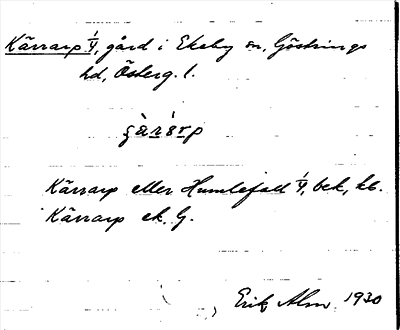 Kärrarp 1/4, gård i Ekeby sn, Göstrings
hd, Österg. l.
Kärrarp eller Humlefall 1/4, bek, kb.
Kärrarp ek. G.
Erik Alm 1930